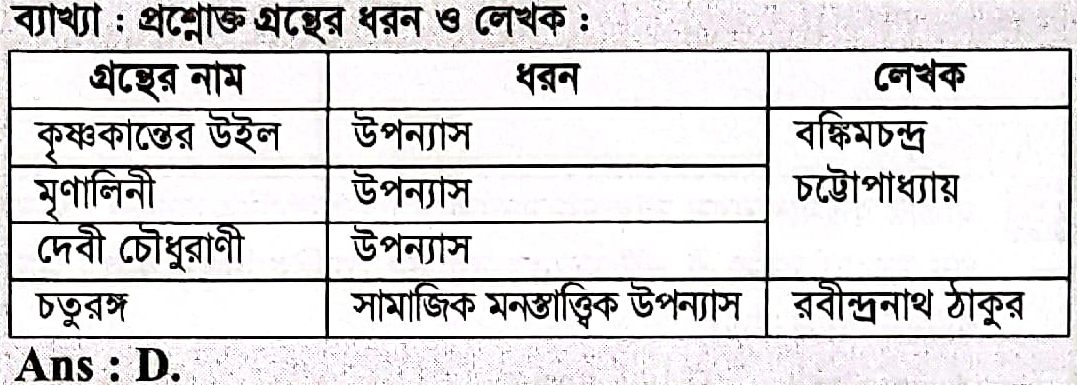 ব্যাখ্যা : প্রশ্নোক্ত গ্রন্থের ধরন ও লেখক :
গ্রন্থের নাম ধরন লেখক
কৃষ্ণকান্তের উইল উপন্যাস বঙ্কিমচন্দ্র
মৃণালিনী উপন্যাস চট্টোপাধ্যায়
দেবী চৌধুরাণী উপন্যাস
চতুরঙ্গ সামাজিক মনস্তাত্ত্বিক উপন্যাস রবীন্দ্রনাথ ঠাকুর
Ans : D.